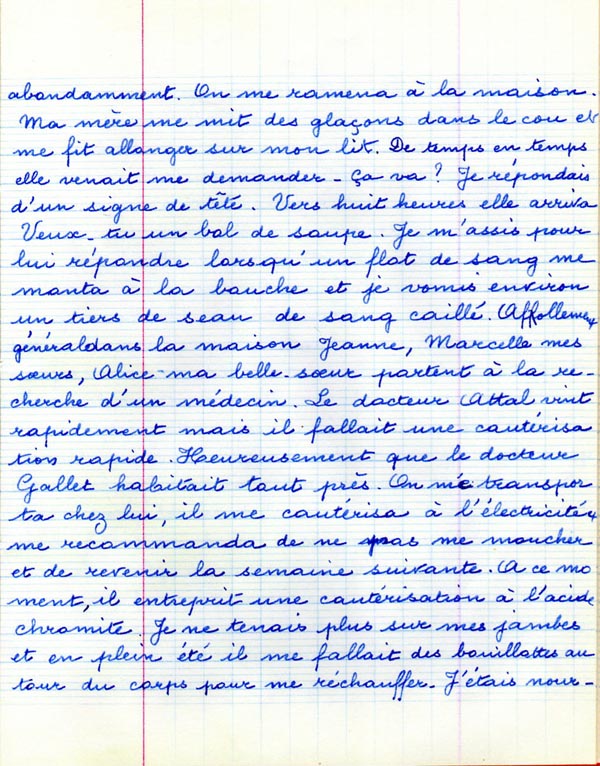 abondamment. On me ramena à la maison.
Ma mère me mit des glaçons dans le cou et
me fit allonger sur mon lit. De temps en temps
elle venait me demander - Ça va ? Je répondais
d'un signe de tête. Vers huit heures elle arriva
Veux-tu un bol de soupe. Je m'assis pour
lui répondre lorsqu'un flot de sang me
monta à la bouche et je vomis environ
un tiers de seau de sang caillé. Affollement
général dans la maison Jeanne, Marcelle mes
sœurs, Alice ma belle-sœur partent à la re-
cherche d'un médecin. Le docteur Attal vint
rapidement mais il fallait une cautérisa
tion rapide. Heureusement que le docteur
Gallet habitait tout près. On me transpor
ta chez lui, il me cautérisa à l'électricité et
me recommanda de ne pas me moucher
et de revenir la semaine suivante. A ce mo
ment, il entreprit une cautérisation à l'acide
chromite. Je ne tenais plus sur mes jambes
et en plein été il me fallait des bouillottes au
tour du corps pour me réchauffer. J'étais nour-